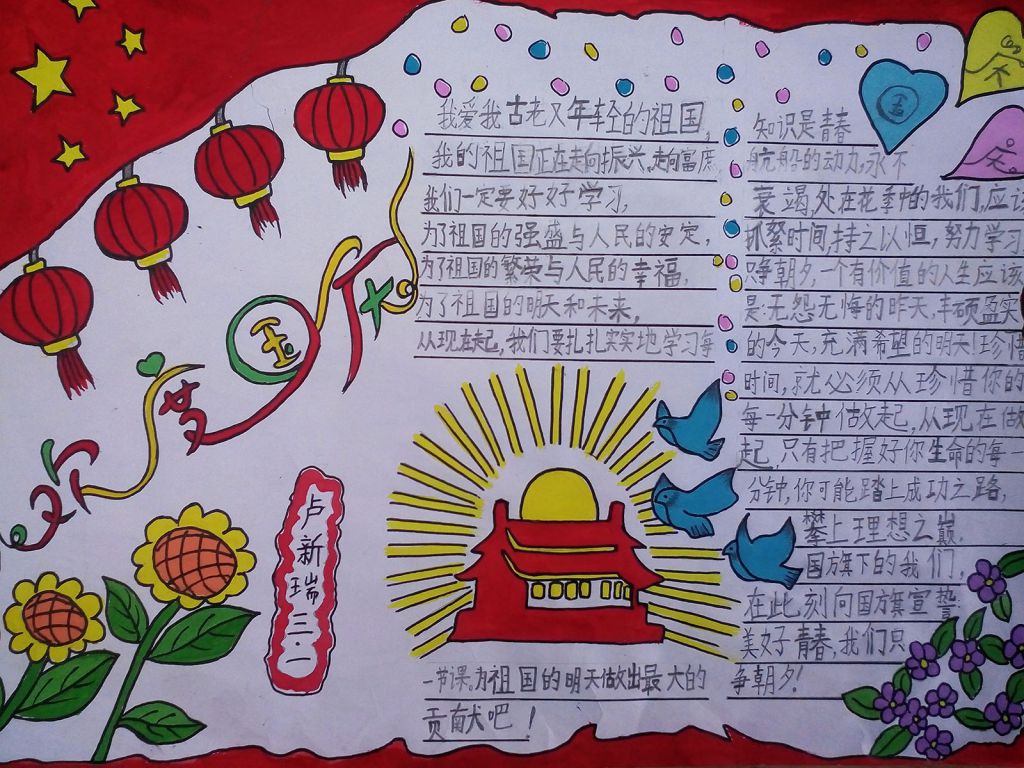 欢度国庆
卢新瑞
三·一
我爱我古老又年轻的祖国,
我的祖国正在走向振兴,走向富庶,
我们一定要好好学习,
为了祖国的强盛与人民的安定,
为了祖国的繁荣与人民的幸福,
为了祖国的明天和未来,
从现在起,我们要扎扎实实地学习每
一节课。为祖国的明天做出最大的
贡献吧!
知识是青春
航船的动力,永不
衰竭,处在花季中的我们,应该
抓紧时间,持之以恒,努力学习,
只争朝夕,一个有价值的人生应该
是:无怨无悔的昨天,丰硕盈实
的今天,充满希望的明天!珍惜
时间,就必须从珍惜你的
每一分钟做起,从现在做
起,只有把握好你生命的每一
分钟,你可能踏上成功之路,
攀上理想之巅。
国方旗下的我们,
在此刻向国方旗宣誓:
美好青春,我们只
争朝夕!
国
庆